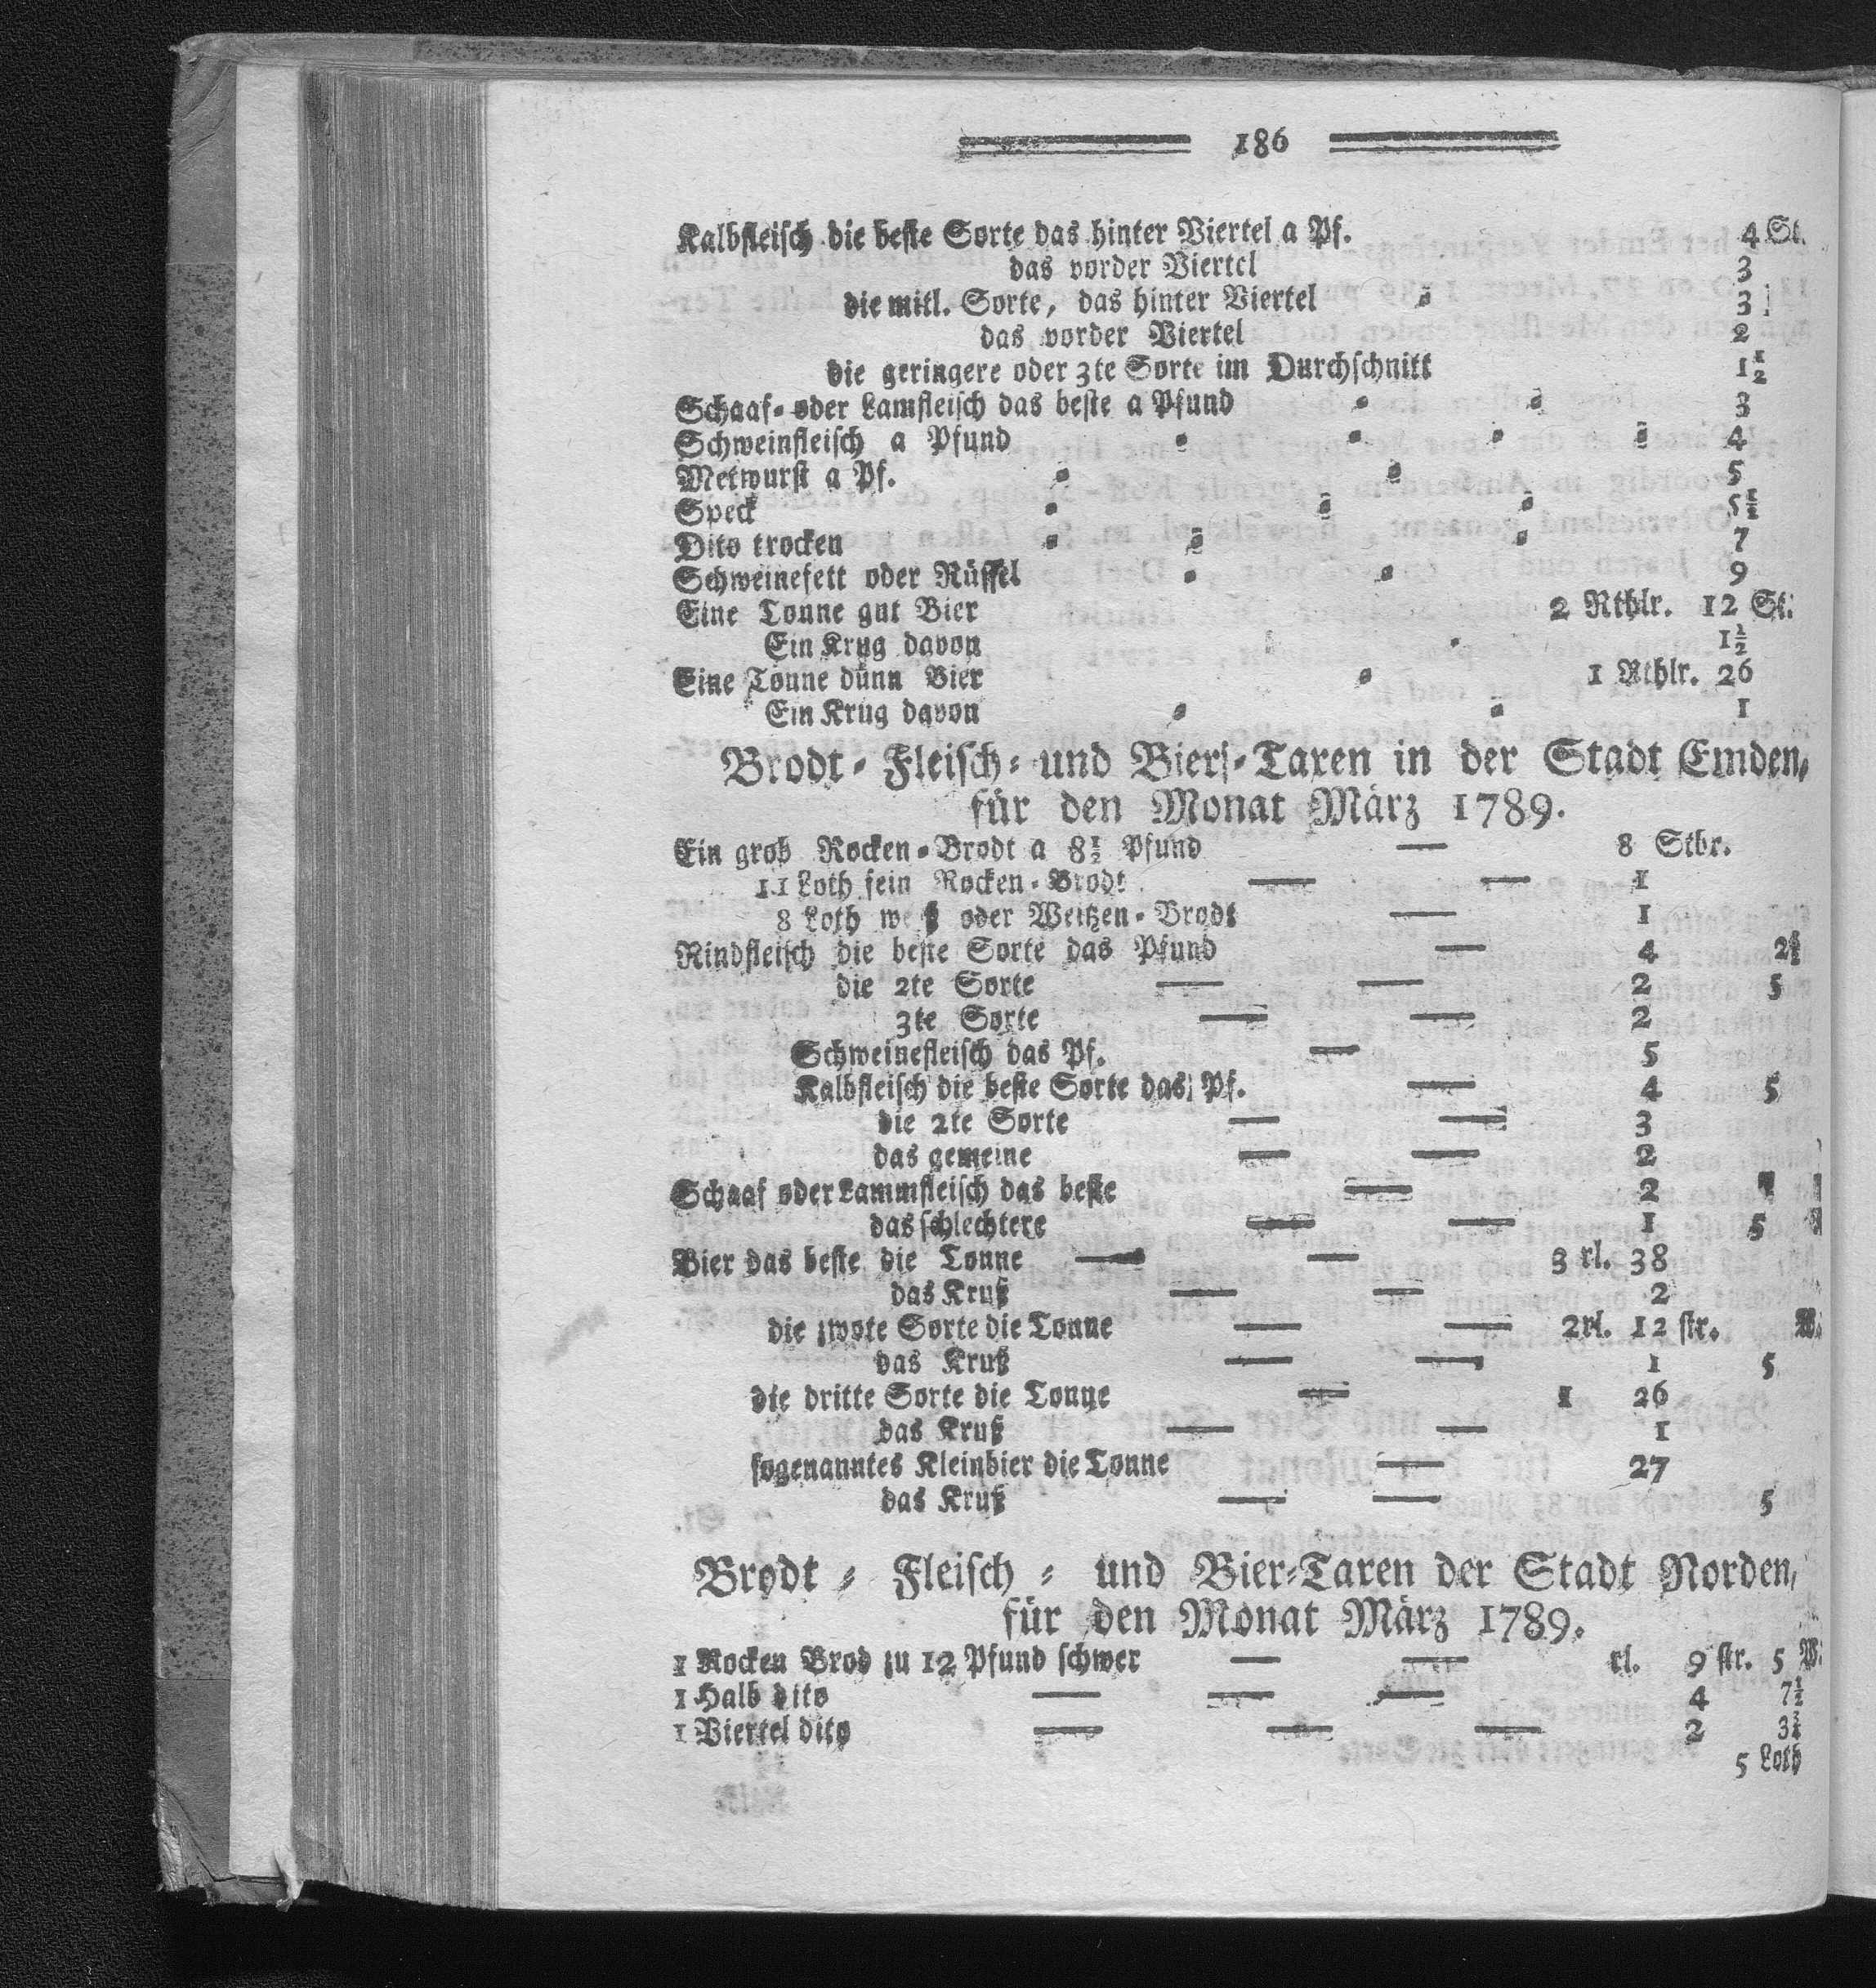 186
Kalbfleisch die beste Sorte das hinter Viertel a Pf. 4 St.
das vorder Viertel 3
die mitl. Sorte, das hinter Viertel 3
das vorder Viertel 2
die geringere oder 3te Sorte im Durchschnitt 1½
Schaaf- oder Lamfleisch das beste a Pfund 3
Schweinfleisch a Pfund 4
Metwurst a Pf. 5
Speck 5½
Dito trocken 7
Schweinefett oder Rüssel 9
Eine Tonne gut Bier 2 Rthlr. 12 St.
Ein Krug davon 1½
Eine Tonne dünn Bier 1 Rthlr. 26
Ein Krug davon 1
Brodt- Fleisch- und Biers-Taxen in der Stadt Emden,
für den Monat März 1789.
Ein grob Rocken-Brodt a 8½ Pfund — 8 Stbr.
11 Loth fein Rocken-Brodt — — 1
8 Loth weiß oder Weitzen-Brodt — 1
Rindfleisch die beste Sorte das Pfund — 4 2½
die 2te Sorte — — 2 5
3te Sorte — — 2
Schweinefleisch das Pf. — 5
Kalbfleisch die beste Sorte das Pf. — 4 5
die 2te Sorte — — 3
das gemeine — — 2
Schaaf oder Lammfleisch das beste — 2
das schlechtere — — 1 5
Bier das beste die Tonne — — 3 rl. 38
das Kruß — — 2
die zwote Sorte die Tonne — — 2rl. 12 str. W.
das Kruß — — 1 5
die dritte Sorte die Tonne — 1 26
das Kruß — — 1
sogenanntes Kleinbier die Tonne — 27
das Kruß — — 5
Brodt- Fleisch- und Bier-Taxen der Stadt Norden,
für den Monat März 1789.
1 Rocken Brod zu 12 Pfund schwer — — rl. 9 str. 5 W.
1 Halb dito — — — 4 7½
1 Viertel dito — — — 2 3¾
5 Loth